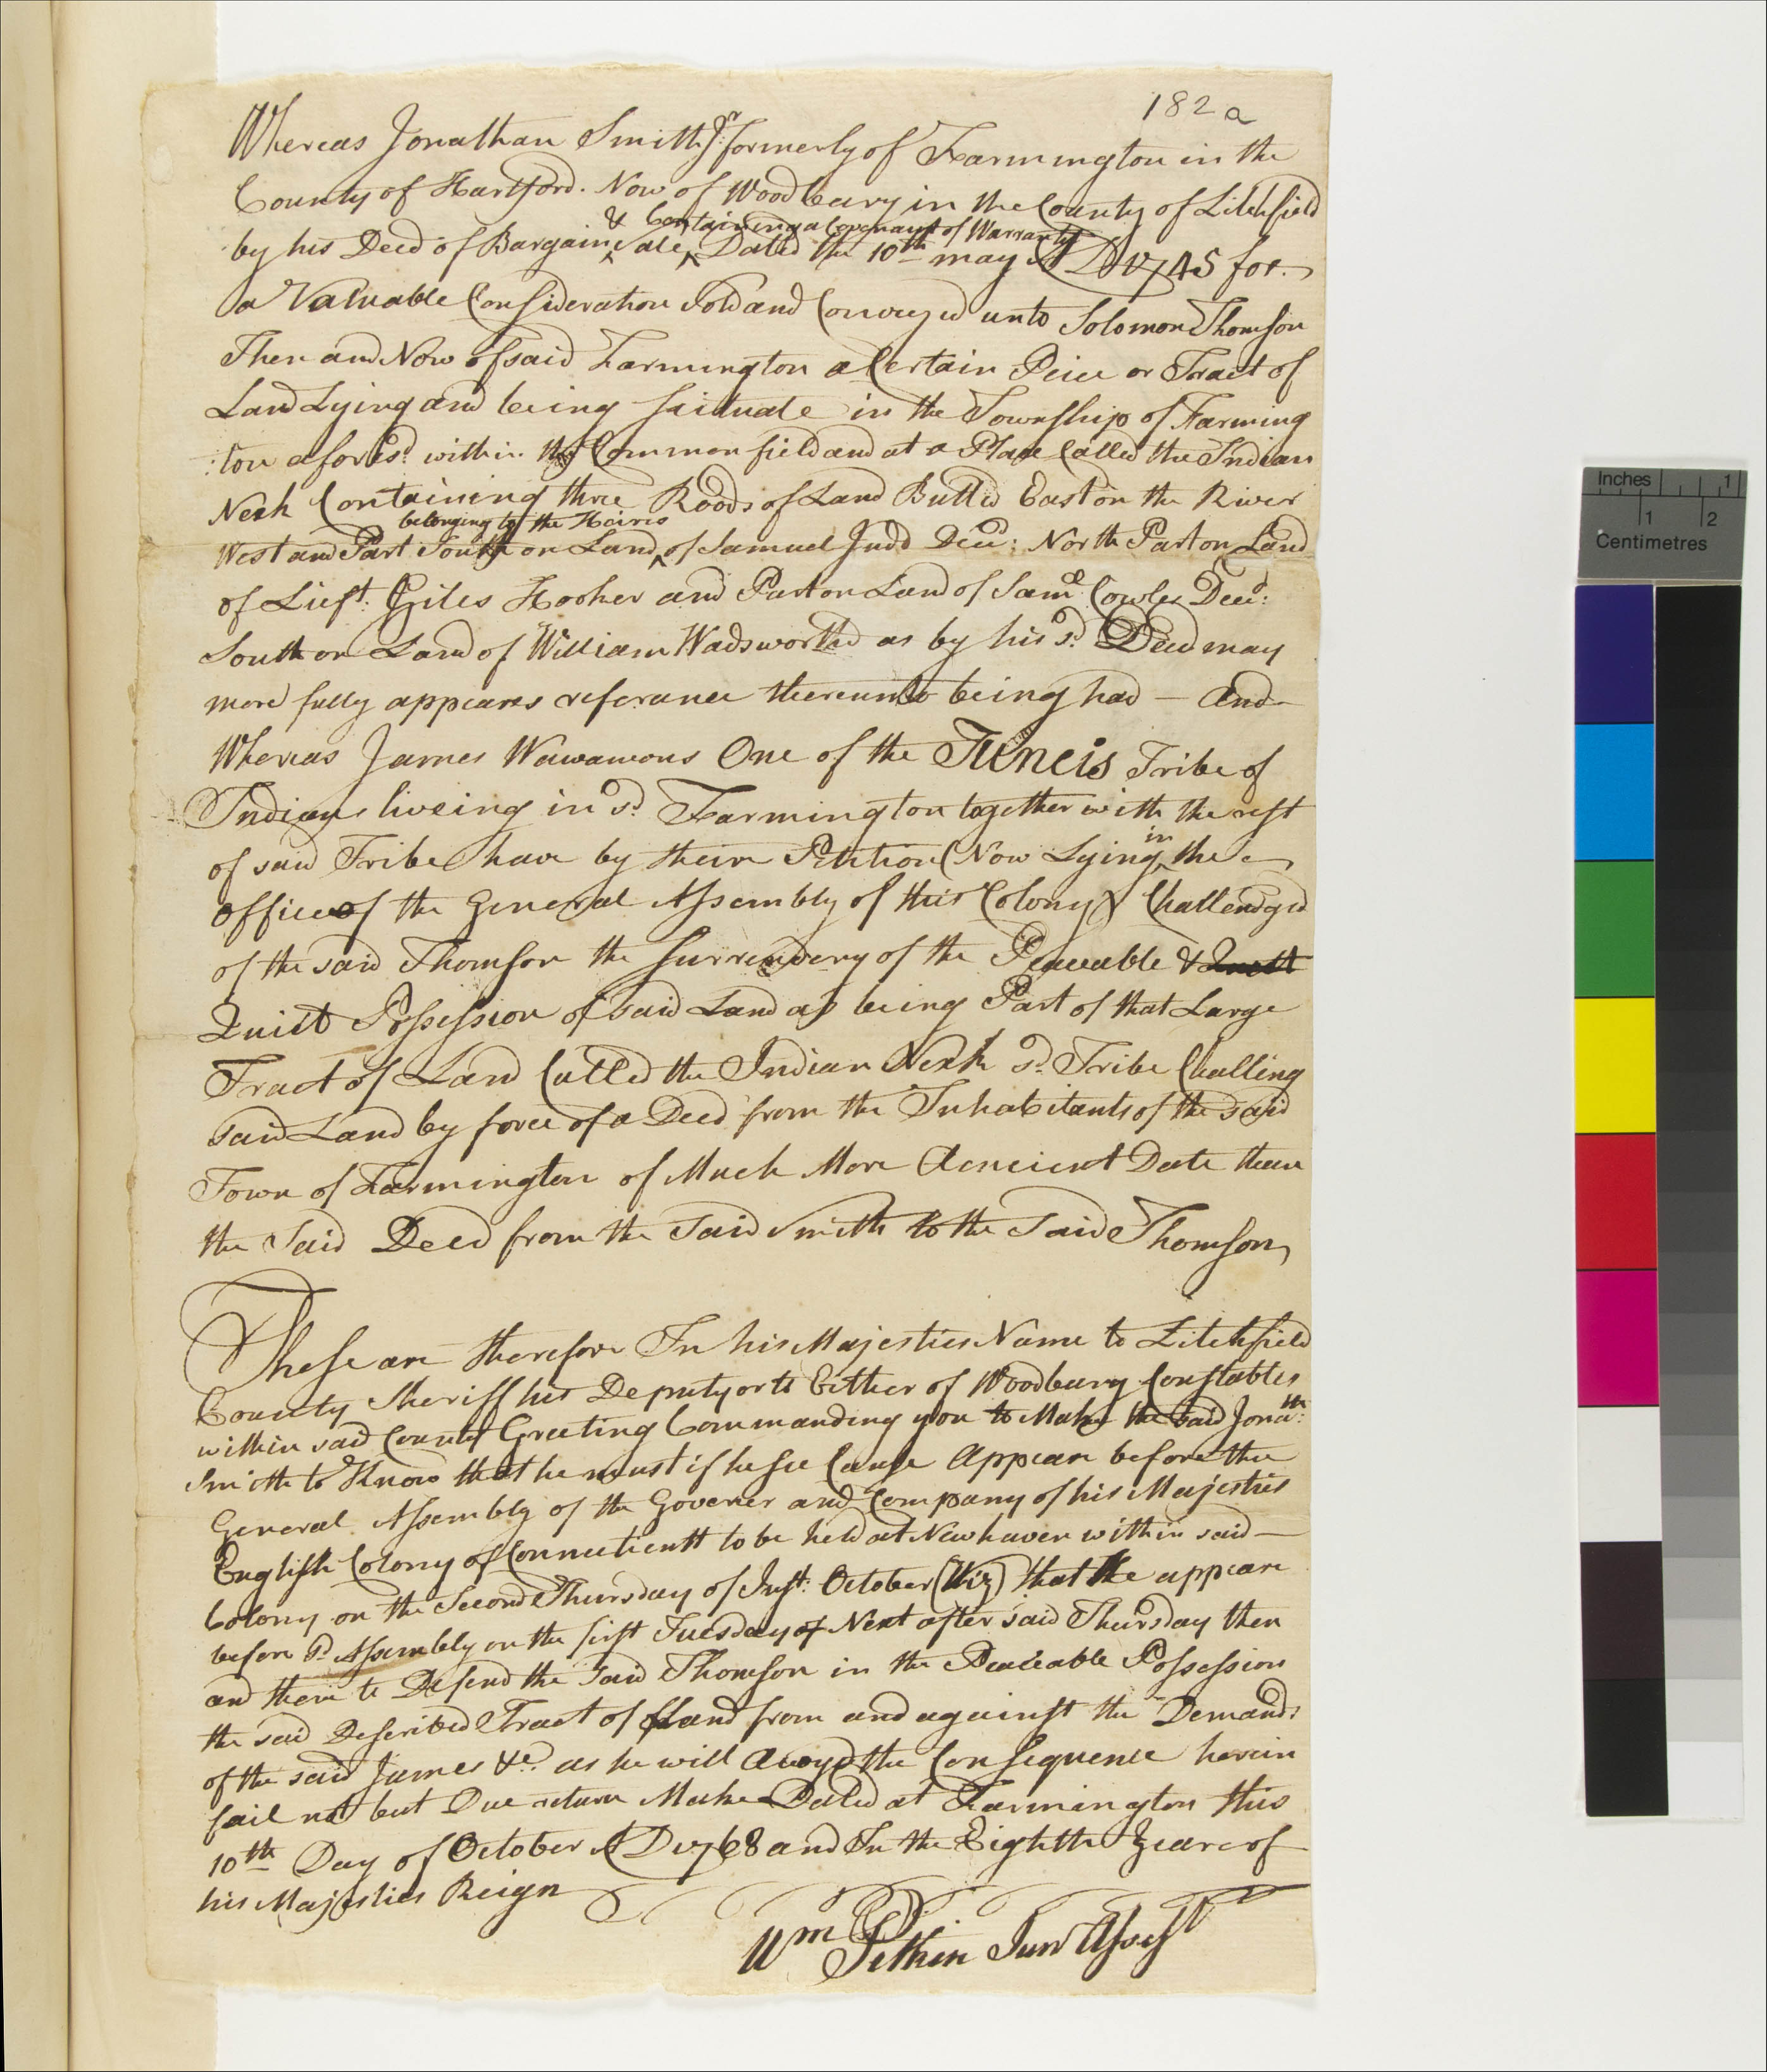 182 a
Whereas Jonathan Smith Jr: formerly of Farmington in the
County of Hartford. Now of Woodbury in the County of Litchfield
& Containing a Covenant of Warranty
by his Deed of Bargain Sale Dated the 10th may AD 1745 for
a Valuable Consideration Sold and Conveyed unto Solomon Thomson
Then and Now of said Farmington a Certain Peice or Tract of
Land Lying and being scituate in the Township of Farming
ton afores'd within the Common field and at a Place Called the Indian
Neck Containing three Roods of Land Butted East on the River
belonging to the Heires
West and Part South on Land of Samuel Judd Decd: North Part on Land
of Lieft: Giles Hooker and Part on Land of Samll Cowles Decd:
South on Land of William Wadsworth as by his sd Deed may
more fully appeares referance thereunto being had — And
Whereas James Wawawous One of the Tuncis Tribe of
Indians liveing in sd Farmington together with the rest
in
of said Tribe have by their Petition (Now Lying the
office of the General Assembly of this Colony) Challendged
of the said Thomson the Surrendery of the Peaceable &
Quiet Possession of said Land as being Part of that Large
Tract of Land Called the Indian Neck sd Tribe Challing
said Land by force of a Deed from the Inhabitants of the said
Town of Farmington of Much More Ancient Date then
the Said Deed from the Said Smith to the Said Thomson
These are therefore In his Majesties Name to Litchfield
County Sheriff his Deputy or to Either of Woodbury Constables
within said County Greeting Commanding you to Make the said Jonath:
Smith to Know that he must if he see Cause Appear before the
General Assembly of the Govener and Company of his Majesties
English Colony of Connecticutt to be held at Newhaven within said —
Colony on the Second Thursday of Inst: October (Viz) that he appear
before sd Assembly on the first Tuesday of Next after said Thursday then
and there to Defend the said Thomson in the Peaceable Possession
the said Described Tract of Land from and against the Demands
of the said James &c. as he will Avoyd the Consequence herein
fail not but Due return Make Dated at Farmington this
10th Day of October AD 1768 and In the Eighth Yeare of
his Majesties Reign
Wm Pitkin Junr Assist
Inches 1
1 2
Centimetres